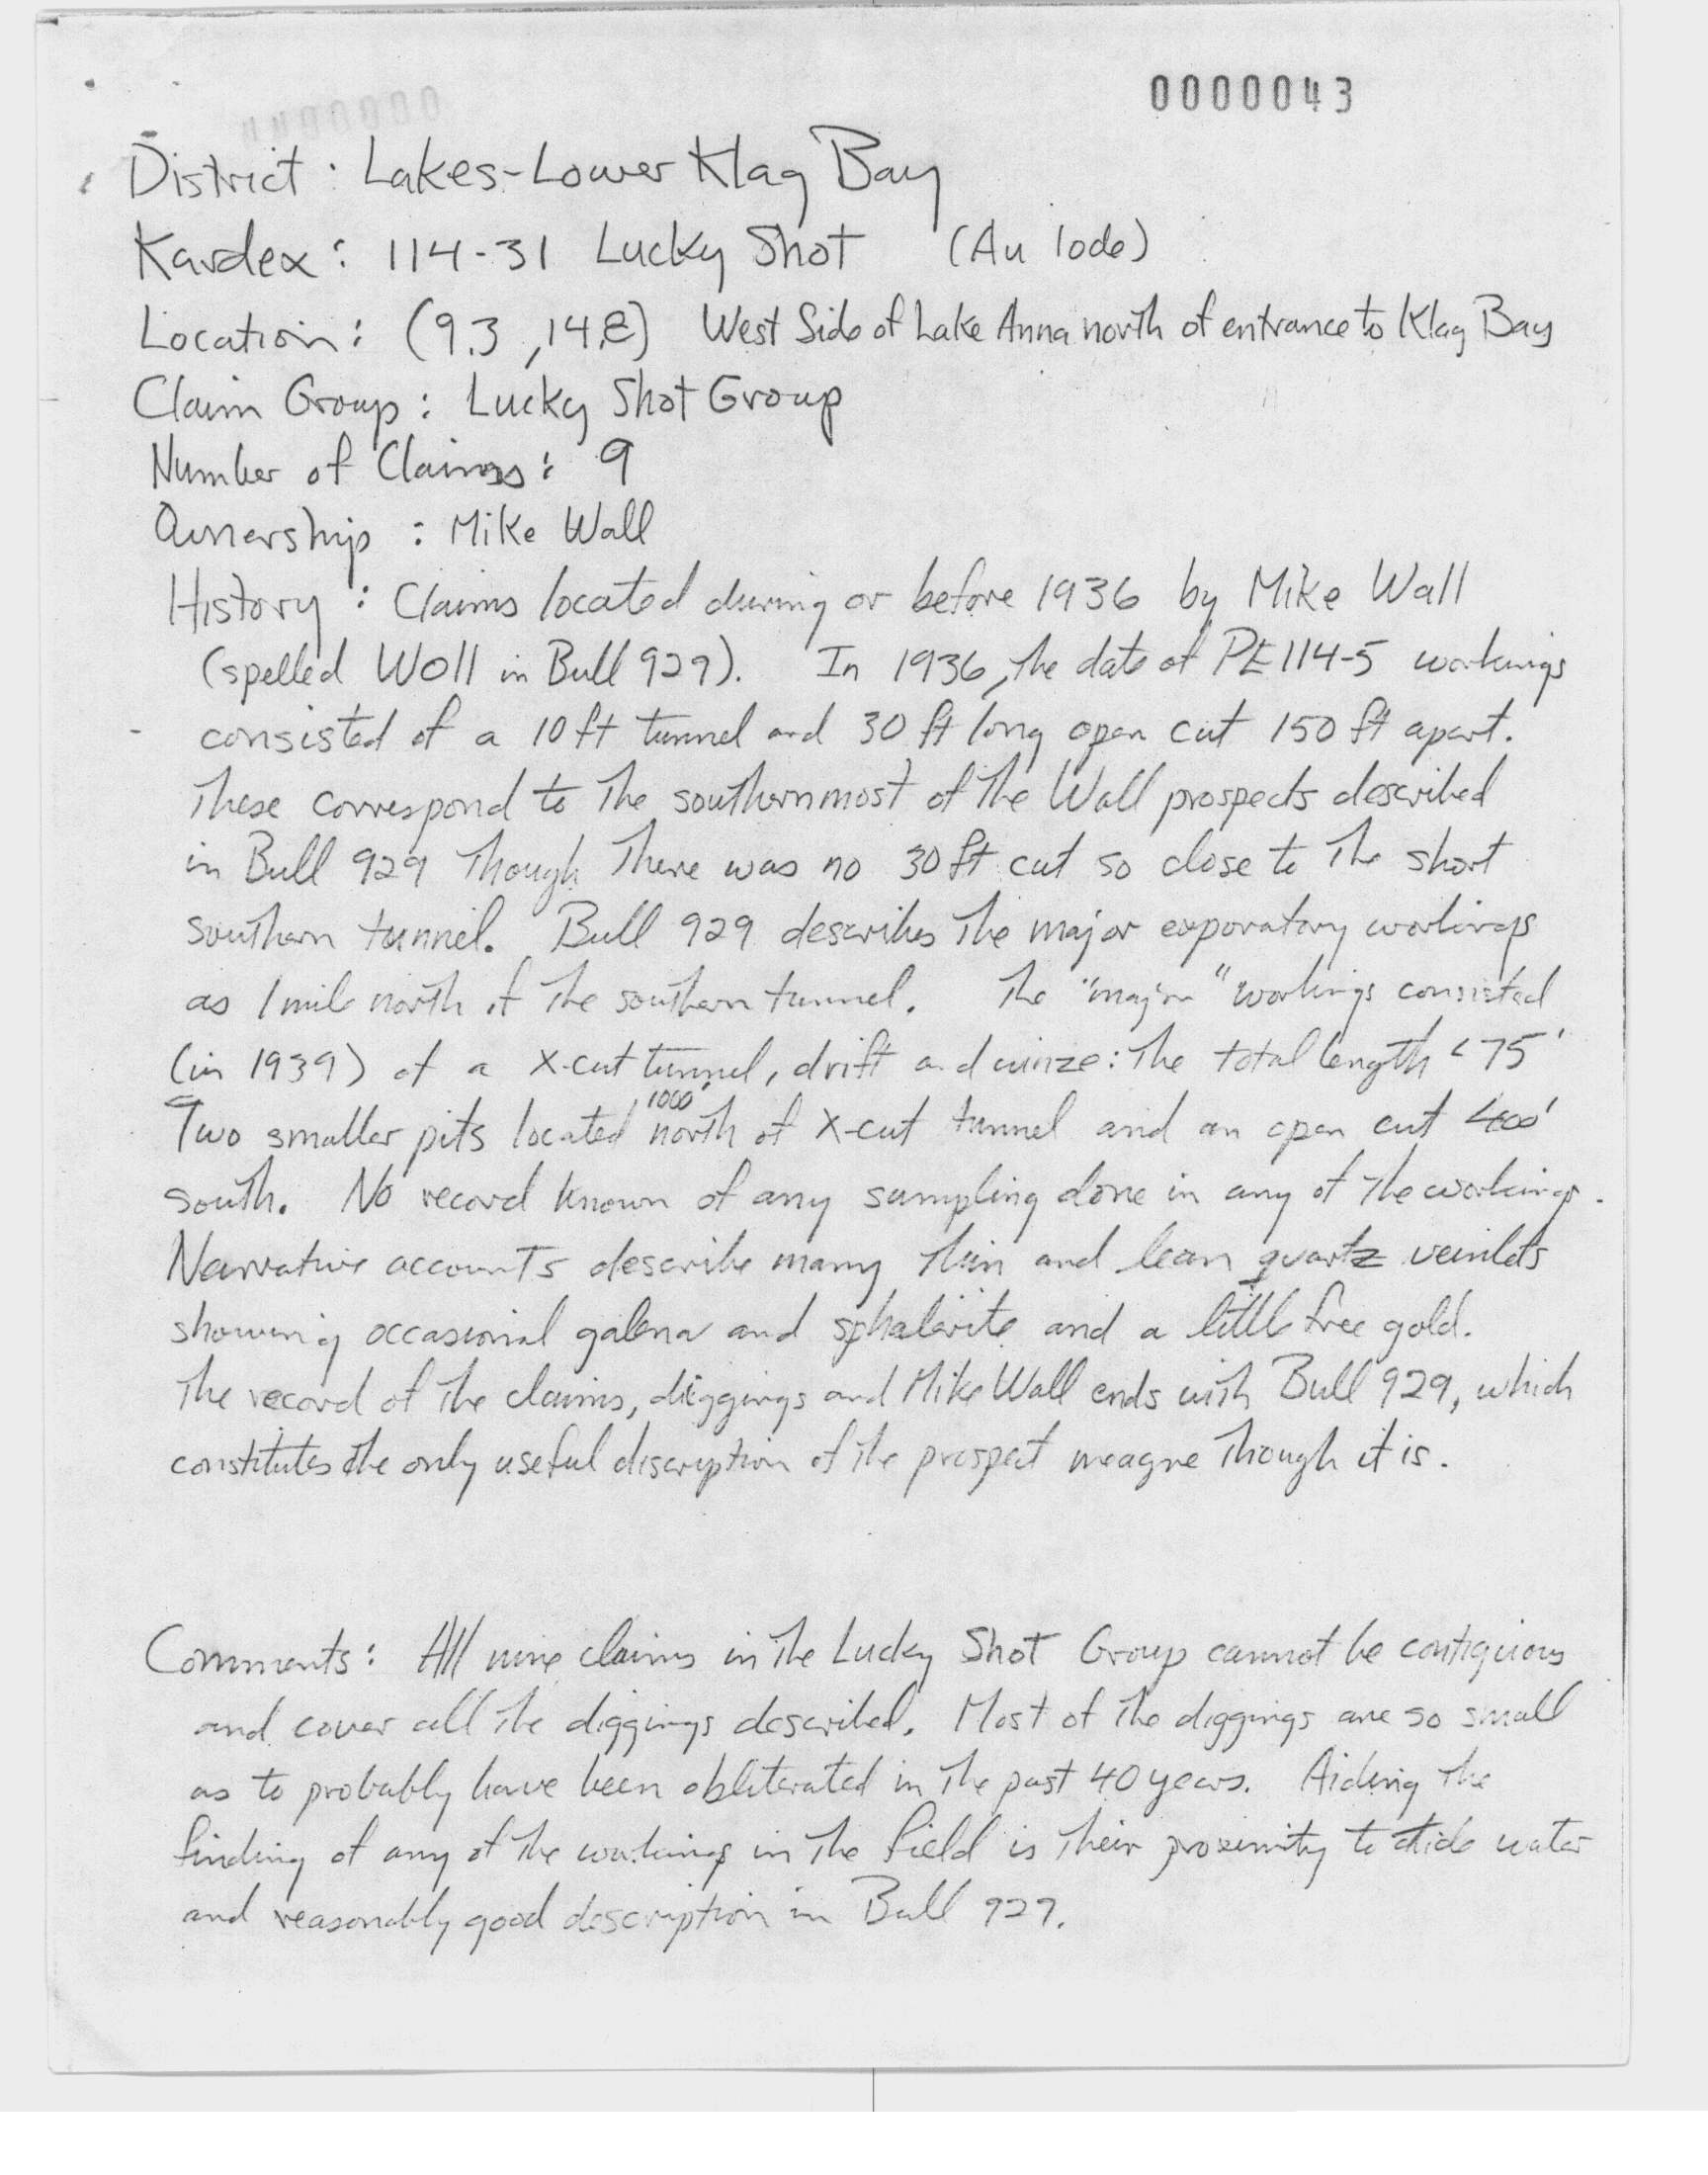 0000043
District : Lakes-Lower Klag Bay
Kardex : 114-31 Lucky Shot (Au lode)
Location : (9.3, 14.8) West Side of Lake Anna north of entrance to Klag Bay
Claim Group : Lucky Shot Group
Number of Claims : 9
Ownership : Mike Wall
History : Claims located during or before 1936 by Mike Wall
(spelled Woll in Bull 929). In 1936, the date of PE 114-5 workings
consisted of a 10 ft tunnel and 30 ft long open cut 150 ft apart.
These correspond to the southernmost of the Wall prospects described
in Bull 929 though there was no 30 ft cut so close to the short
southern tunnel. Bull 929 describes the major exporatory workings
as 1 mile north of the southern tunnel. The "major" workings consisted
(in 1939) of a X-cut tunnel, drift and winze: the total length <75'
Two smaller pits located 1000' north of X-cut tunnel and an open cut 400'
south. No record known of any sampling done in any of the workings.
Narrative accounts describe many thin and lean quartz veinlets
showing occasional galena and sphalerite and a little free gold.
The record of the claims, diggings and Mike Wall ends with Bull 929, which
constitutes the only useful discription of the prospect meagre though it is.
Comments : All nine claims in the Lucky Shot Group cannot be contiguous
and cover all the diggings described. Most of the diggings are so small
as to probably have been obliterated in the past 40 years. Aiding the
finding of any of the workings in the field is their proximity to tide water
and reasonably good description in Bull 929.